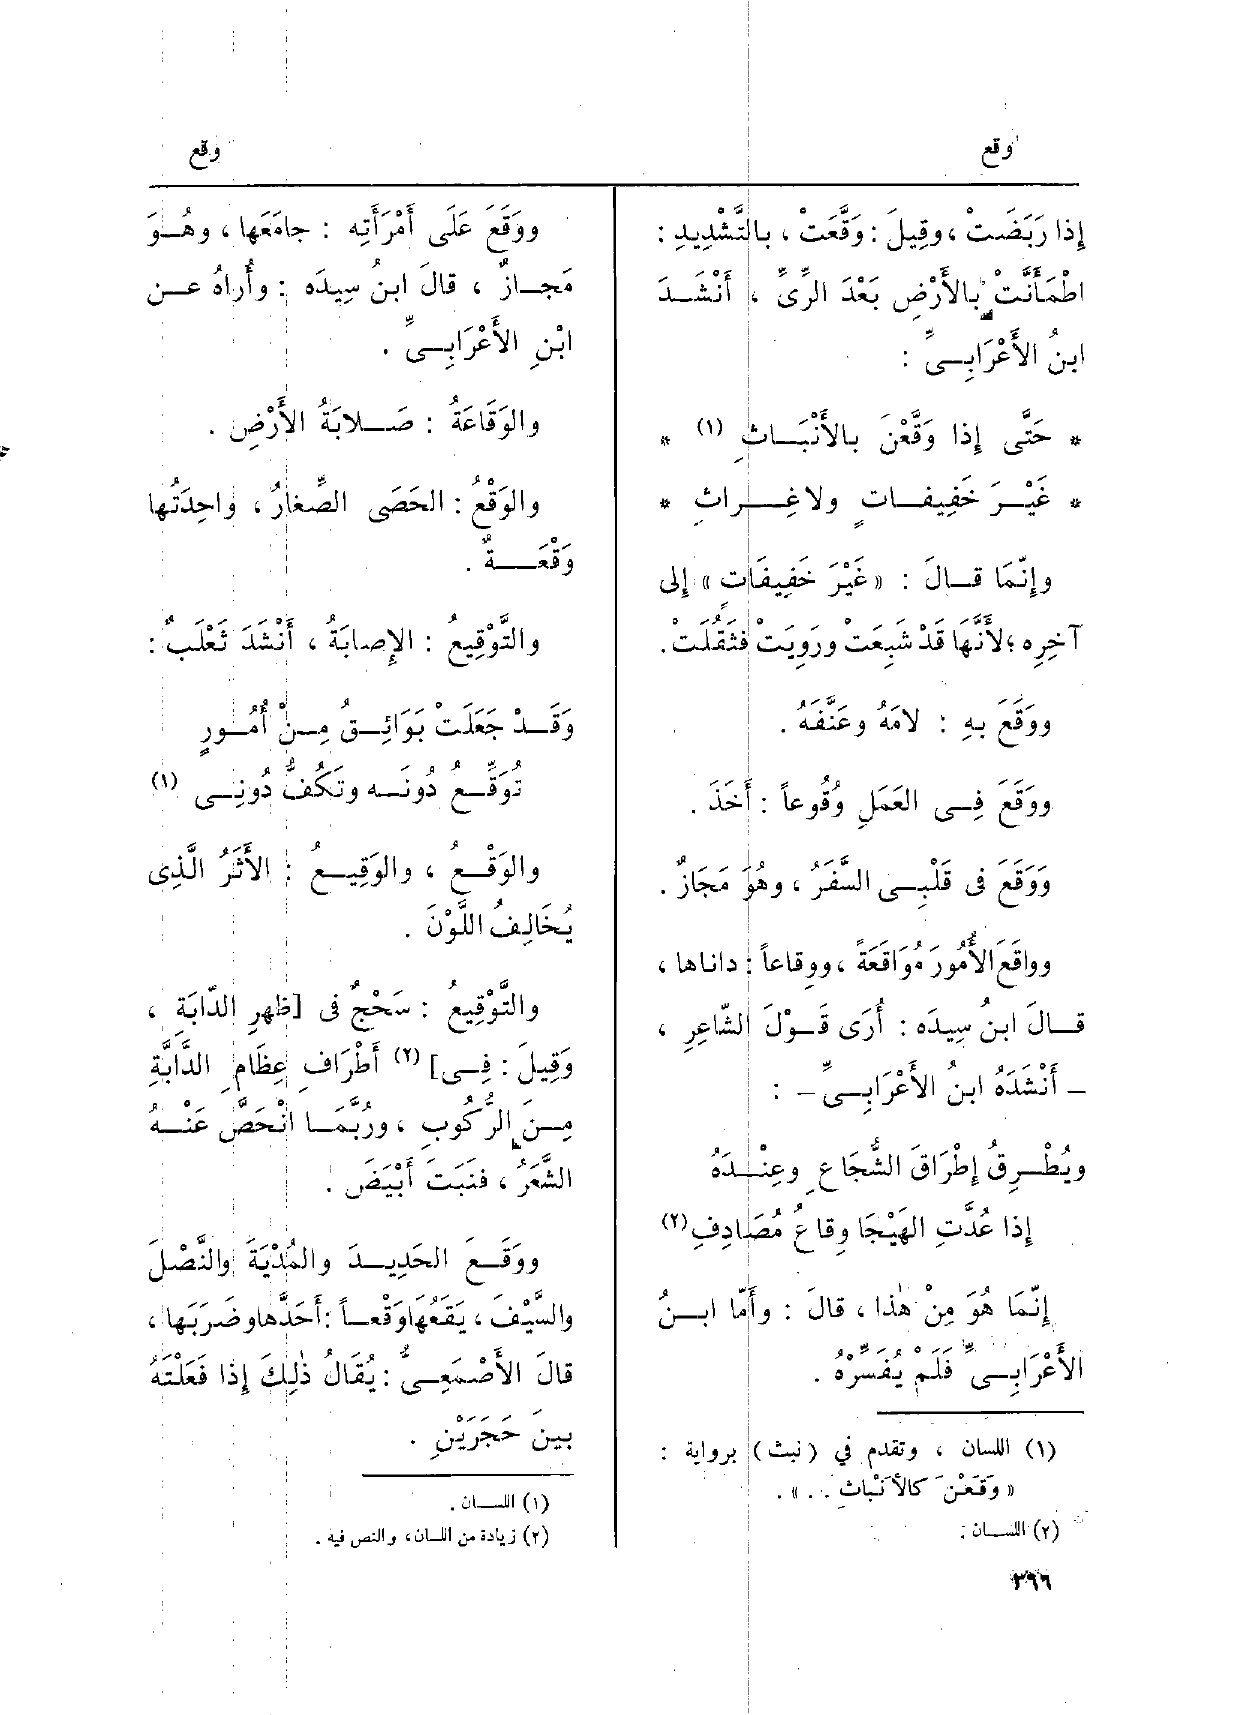 وقع
وقع
إذا رَبَضَتْ ، وقِيلَ : وَقَّعَتْ ، بالتَّشْدِيدِ :
اطْمَأَنَّتْ بالأَرْضِ بَعْدَ الرِّىِّ ، أَنْشَـدَ
ابنُ الأَعْرَابِـىِّ :
* حَتَّى إذا وَقَّعْنَ بالأَنْبَـاثِ (١) *
* غَيْـرَ خَفِيفـاتٍ ولا غِـراثِ *
وإنَّمَا قـالَ : « غَيْرَ خَفِيفَاتٍ » إلى
آخِرِه ؛ لأَنَّهَا قَدْ شَبِعَتْ ورَوِيَتْ فثَقُلَتْ .
ووَقَعَ بِهِ : لامَهُ وعَنَّفَهُ .
ووَقَعَ فِـى العَمَلِ وُقُوعاً : أَخَذَ .
ووَقَعَ فى قَلْبِـى السَّفَرُ ، وهُوَ مَجَازٌ .
وواقَعَ الأُمُورَ مُوَاقَعَةً ، ووِقاعاً : داناها ،
قـالَ ابنُ سِيدَه : أُرَى قَـوْلَ الشّاعِرِ ،
– أَنْشَدَهُ ابنُ الأَعْرَابِـىِّ – :
ويُطْـرِقُ إِطْرَاقَ الشُّجَاعِ وعِنْـدَهُ
إذا عُدَّتِ الهَيْجَا وِقاعُ مُصَادِفِ (٢)
إنَّمَا هُوَ مِنْ هٰذا ، قالَ : وأَمّا ابـنُ
الأَعْرَابِـىِّ فَلَمْ يُفَسِّرْهُ .
(١) اللسان ، وتقدم في (نبث) برواية :
« وَقَعْنَ كالأَنْباث . . » .
(٢) اللسـان :
٣٩٦
ووَقَعَ عَلَى أمْرَأَتِه : جامَعَها ، وهُـوَ
مَجـازٌ ، قالَ ابنُ سِيدَه : وأُراهُ عـن
ابْنِ الأَعْرَابِـىِّ .
والوَقَاعَةُ : صَـلابَةُ الأَرْضِ .
والوَقْعُ : الحَصَى الصِّغارُ ، واحِدَتُها
وَقْعَـةٌ .
والتَّوْقِيعُ : الإِصابَةُ ، أَنْشَدَ ثَعْلَبٌ :
وَقَـدْ جَعَلَتْ بَوَائِـقُ مِـنْ أُمُـورٍ
تُوَقِّـعُ دُونَـه وتَكُفُّ دُونِـى (١)
والوَقْـعُ ، والوَقِيـعُ : الأَثَرُ الَّذِى
يُخَالِفُ اللَّوْنَ .
والتَّوْقِيعُ : سَحْجٌ فى [ظَهرِ الدّابَةِ ،
وَقِيلَ : فِـى] (٢) أَطْرَافِ عِظَامِ الدَّابَّةِ
مِـنَ الرُّكُوبِ ، ورُبَّمَـا انْحَصَّ عَنْـهُ
الشَّعَرُ ، فنَبَتَ أَبْيَضَ .
ووَقَـعَ الحَدِيـدَ والمُدْيَةَ والنَّصْلَ
والسَّيْفَ ، يَقَعُهَا وَقْعـاً : أَحَدَّها وضَرَبَها ،
قالَ الأَصْمَعِـىُّ : يُقَالُ ذٰلِكَ إذا فَعَلْتَهُ
بينَ حَجَرَيْنِ .
(١) اللسـان .
(٢) زيادة من اللسان ، والنص فيه .